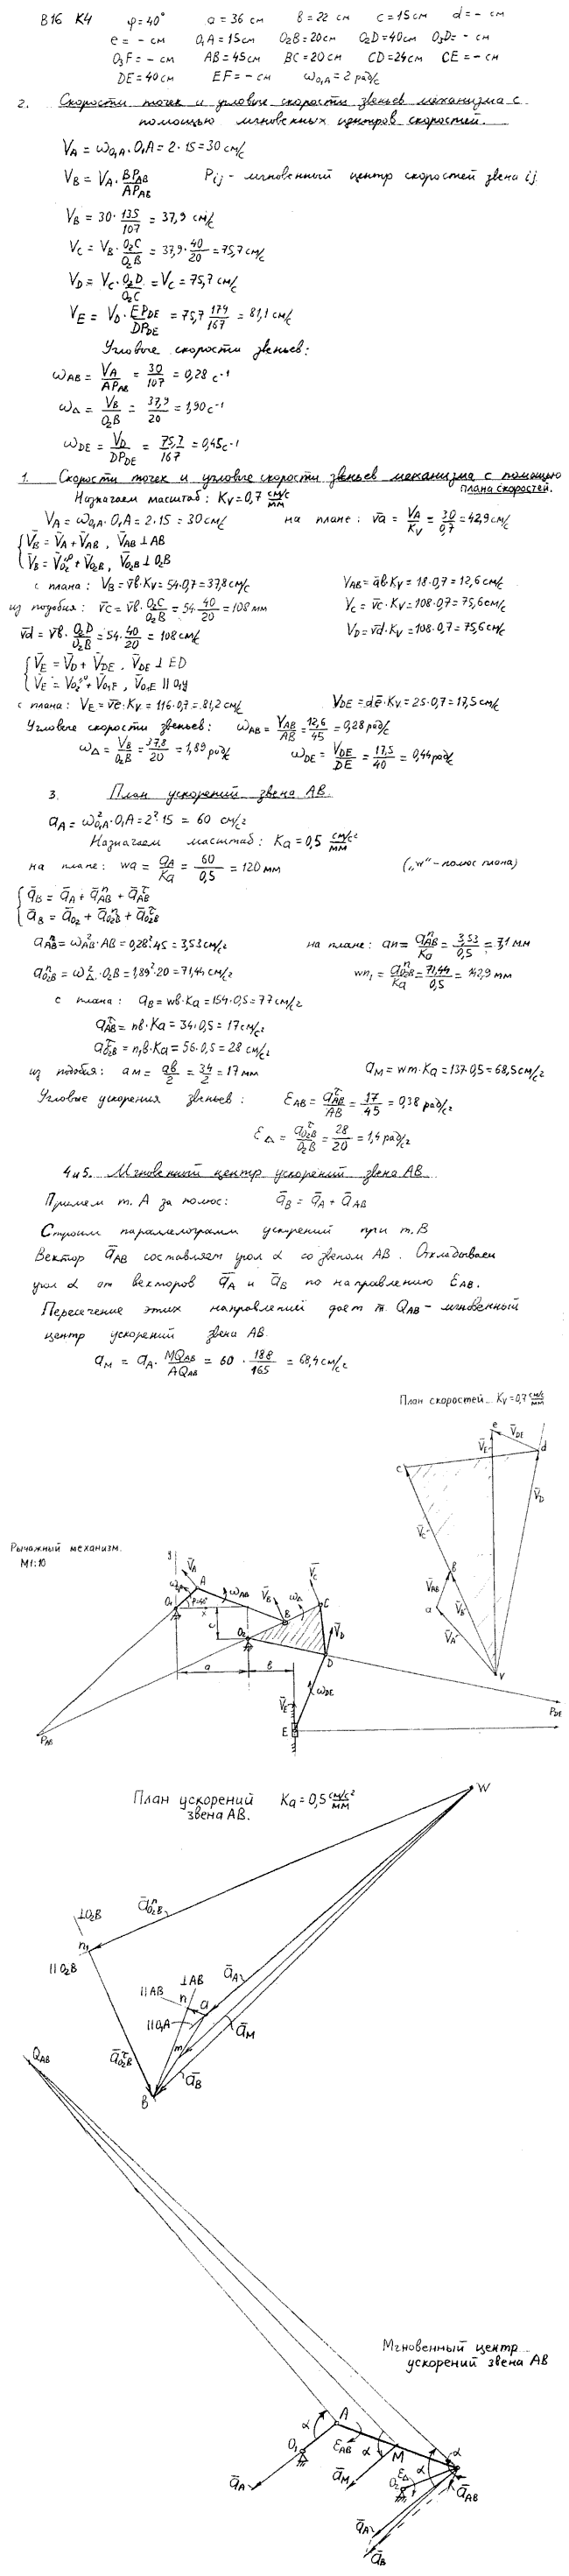 В16 К4 φ=40° a=36 см b=22 см c=15 см d=– см
e=– см O₁A=15см O₂B=20см O₂D=40см O₃D=– см
O₃F=– см AB=45см BC=20см CD=24см CE=– см
DE=40см EF=– см ω_O₁A=2 рад/с
2. Скорости точек и угловые скорости звеньев механизма с
помощью мгновенных центров скоростей.
V_A = ω_O₁A·O₁A = 2·15 = 30 см/с
V_B = V_A·BP_AB/AP_AB P_ij – мгновенный центр скоростей звена ij
V_B = 30·135/107 = 37,9 см/с
V_C = V_B·O₂C/O₂B = 37,9·40/20 = 75,7 см/с
V_D = V_C·O₂D/O₂C = V_C = 75,7 см/с
V_E = V_D·EP_DE/DP_DE = 75,7·179/167 = 81,1 см/с
Угловые скорости звеньев:
ω_AB = V_A/AP_AB = 30/107 = 0,28 с⁻¹
ω_Δ = V_B/O₂B = 37,9/20 = 1,90 с⁻¹
ω_DE = V_D/DP_DE = 75,7/167 = 0,45 с⁻¹
1. Скорости точек и угловые скорости звеньев механизма с помощью
плана скоростей.
Назначаем масштаб: K_V=0,7 см/с/мм
V_A = ω_O₁A·O₁A = 2·15 = 30 см/с на плане: v̄a = V_A/K_V = 30/0,7 = 42,9 см/с
V̄_B = V̄_A + V̄_AB, V̄_AB ⊥ AB
V̄_B = V̄_O₂⁼⁰ + V̄_O₂B, V̄_O₂B ⊥ O₂B
с плана: V_B = v̄b·K_V = 54·0,7 = 37,8 см/с V_AB = āb·K_V = 18·0,7 = 12,6 см/с
из подобия: v̄c = v̄b·O₂C/O₂B = 54·40/20 = 108 мм V_C = v̄c·K_V = 108·0,7 = 75,6 см/с
v̄d = v̄b·O₂D/O₂B = 54·40/20 = 108 см/с V_D = v̄d·K_V = 108·0,7 = 75,6 см/с
V̄_E = V̄_D + V̄_DE, V̄_DE ⊥ ED
V̄_E = V̄_O₂⁼⁰ + V̄_O₁E, V̄_O₁E || O₁y
с плана: V_E = v̄e·K_V = 116·0,7 = 81,2 см/с V_DE = d̄e·K_V = 25·0,7 = 17,5 см/с
Угловые скорости звеньев: ω_AB = V_AB/AB = 12,6/45 = 0,28 рад/с
ω_Δ = V_B/O₂B = 37,8/20 = 1,89 рад/с ω_DE = V_DE/DE = 17,5/40 = 0,44 рад/с
3. План ускорений звена AB.
a_A = ω²_O₁A·O₁A = 2²·15 = 60 см/с²
Назначаем масштаб: K_a = 0,5 см/с²/мм
на плане: wa = a_A/K_a = 60/0,5 = 120 мм („w"-полюс плана)
ā_B = ā_A + ā^n_AB + ā^τ_AB
ā_B = ā_O₂ + ā^n_O₂B + ā^τ_O₂B
a^n_AB = ω²_AB·AB = 0,28²·45 = 3,53 см/с² на плане: an = a^n_AB/K_a = 3,53/0,5 = 7,1 мм
a^n_O₂B = ω²_Δ·O₂B = 1,89²·20 = 71,44 см/с² wn₁ = a^n_O₂B/K_a = 71,44/0,5 = 142,9 мм
с плана: a_B = wb·K_a = 154·0,5 = 77 см/с²
a^τ_AB = nb·K_a = 34·0,5 = 17 см/с²
a^τ_O₂B = n₁b·K_a = 56·0,5 = 28 см/с²
из подобия: am = ab/2 = 34/2 = 17 мм a_M = wm·K_a = 137·0,5 = 68,5 см/с²
Угловые ускорения звеньев: ε_AB = a^τ_AB/AB = 17/45 = 0,38 рад/с²
ε_Δ = a^τ_O₂B/O₂B = 28/20 = 1,4 рад/с²
4и5. Мгновенный центр ускорений звена AB
Примем т. A за полюс: ā_B = ā_A + ā_AB
Строим параллелограмм ускорений при т. B
Вектор ā_AB составляет угол α со звеном AB. Откладываем
угол α от векторов ā_A и ā_B по направлению ε_AB.
Пересечение этих направлений дает т. Q_AB – мгновенный
центр ускорений звена AB.
a_M = a_A·MQ_AB/AQ_AB = 60·188/165 = 68,4 см/с²
План скоростей K_V=0,7 см/с/мм
e V̄_DE d
V̄_E
c V̄_D
V̄_C
b
V̄_AB
a V̄_B
V̄_A
v
Рычажный механизм.
М1:10
y V̄_A
A ω_AB V̄_B ω_Δ V̄_C
O₁ φ=40° x B C
c O₂ V̄_D
D
a b
ω_DE
V̄_E P_DE
P_AB E
План ускорений K_a=0,5 см/с²/мм
звена AB.
W
ā^n_O₂B
⊥O₂B
n₁
||O₂B ā_A
⊥AB
||AB
n a
||O₁A ā_M
m
ā^τ_O₂B ā_B
B
Q_AB
Мгновенный центр
ускорений звена AB
α A
O₁ ε_AB α M α
ā_A ā_M ε_Δ α
O₂ ā_AB
ā_A
ā_B